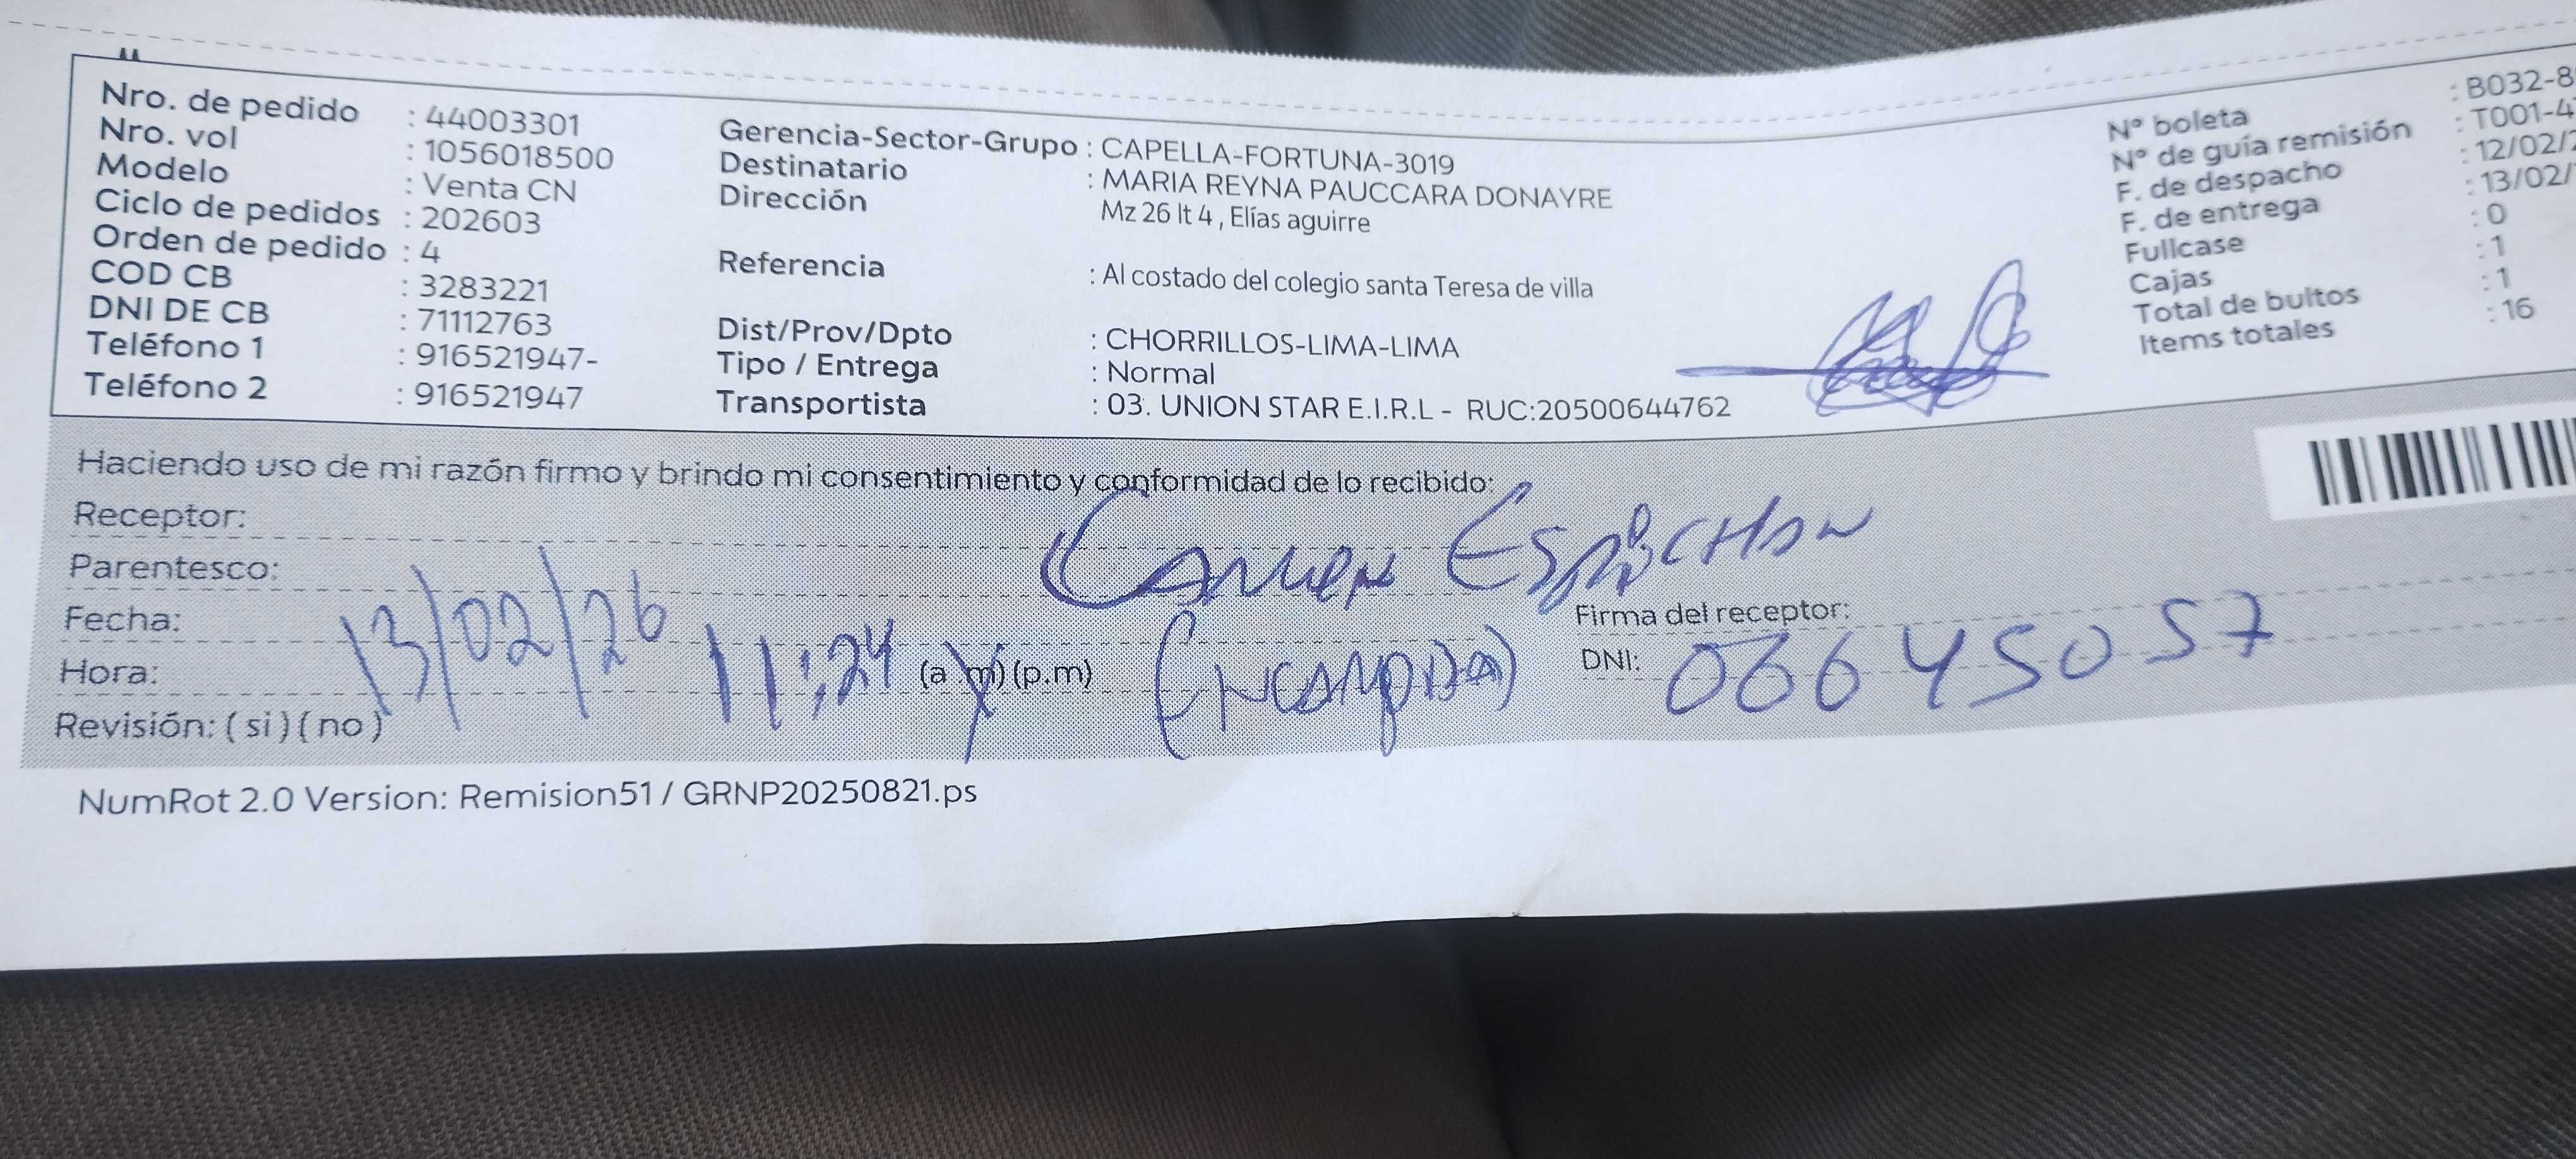 Nro. de pedido : 44003301
Nro. vol : 1056018500
Modelo : Venta CN
Ciclo de pedidos : 202603
Orden de pedido : 4
COD CB : 3283221
DNI DE CB : 71112763
Teléfono 1 : 916521947-
Teléfono 2 : 916521947
Gerencia-Sector-Grupo : CAPELLA-FORTUNA-3019
Destinatario : MARIA REYNA PAUCCARA DONAYRE
Dirección Mz 26 lt 4 , Elías aguirre
Referencia : Al costado del colegio santa Teresa de villa
Dist/Prov/Dpto : CHORRILLOS-LIMA-LIMA
Tipo / Entrega : Normal
Transportista : 03. UNION STAR E.I.R.L - RUC:20500644762
N° boleta : B032-8
N° de guía remisión : T001-4
F. de despacho : 12/02/
F. de entrega : 13/02/
Fullcase : 0
Cajas : 1
Total de bultos : 1
Items totales : 16
Haciendo uso de mi razón firmo y brindo mi consentimiento y conformidad de lo recibido:
Receptor: Carmen Espichan
Parentesco:
Fecha: 13/02/26
Hora: 11:24 (a.m) (p.m) (
Firma del receptor:
DNI: 06645057
Revisión: ( si ) ( no )
NumRot 2.0 Version: Remision51 / GRNP20250821.ps